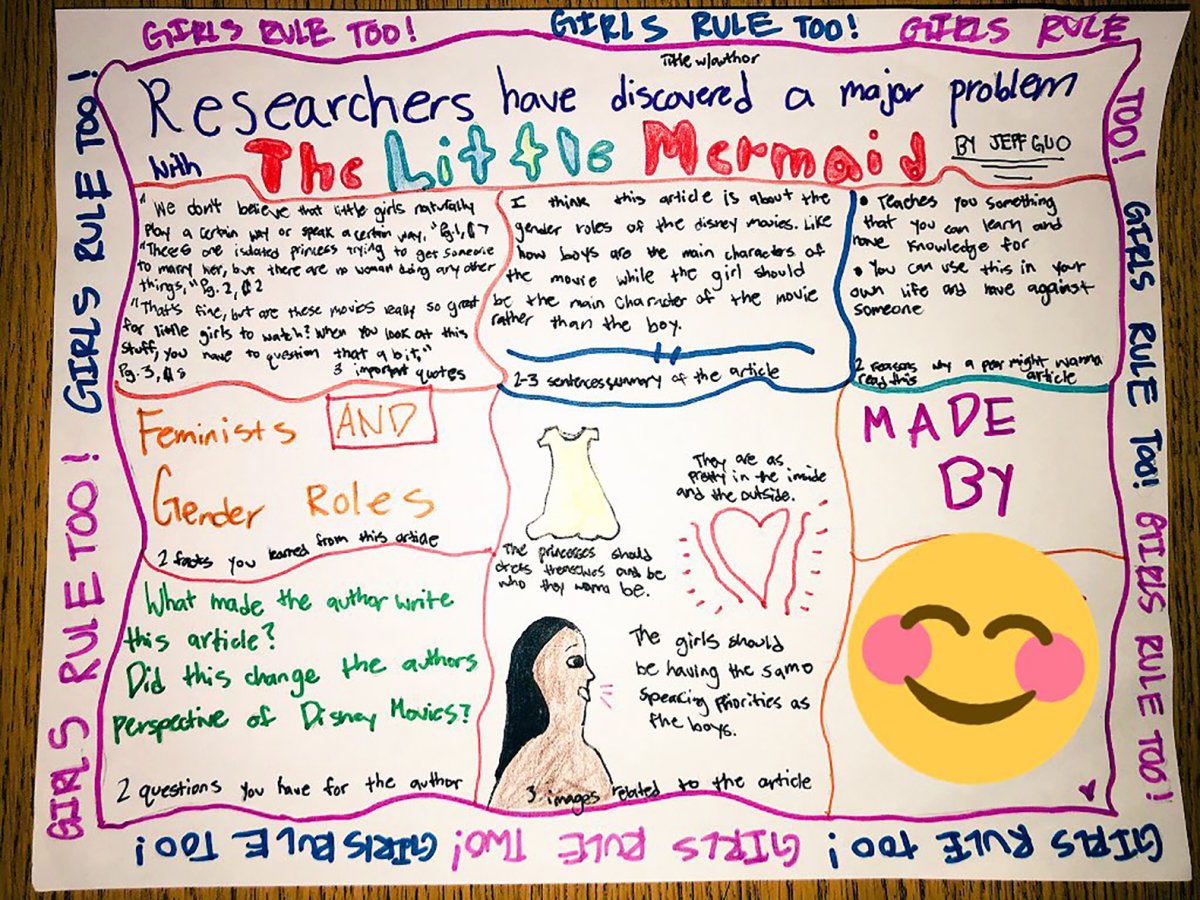 GIRLS RULE TOO! GIRLS RULE TOO! GIRLS RULE
TOO!
GIRLS RULE TOO! GIRLS RULE TOO!
GIRLS RULE TOO! GIRLS RULE TOO!
Title w/author
Researchers have discovered a major problem
with The Little Mermaid BY JEFF GUO
"We don't believe that little girls naturally
play a certain way or speak a certain way," Pg.1, ¶7
"There's one isolated princess trying to get someone
to marry her, but there are no woman doing any other
things," Pg. 2, ¶2
"That's fine, but are these movies really so great
for little girls to watch? When you look at this
stuff, you have to question that a bit,"
Pg. 3, ¶8
3 important quotes
I think this article is about the
gender roles of the disney movies. Like
how boys are the main characters of
the movie while the girl should
be the main character of the movie
rather than the boy.
2-3 sentences summary of the article
• Teaches you something
that you can learn and
have knowledge for
• You can use this in your
own life and have against
someone
2 reasons why a peer might wanna
read this article
Feminists AND
Gender Roles
2 facts you learned from this article
They are as
pretty in the inside
and the outside.
The princesses should
dress themselves and be
who they wanna be.
MADE
BY
What made the author write
this article?
Did this change the authors
perspective of Disney Movies?
2 questions you have for the author
The girls should
be having the same
speaking priorities as
the boys.
3 images related to the article
GIRLS RULE TOO! GIRLS RULE TWO! GIRLS RULE TOO!